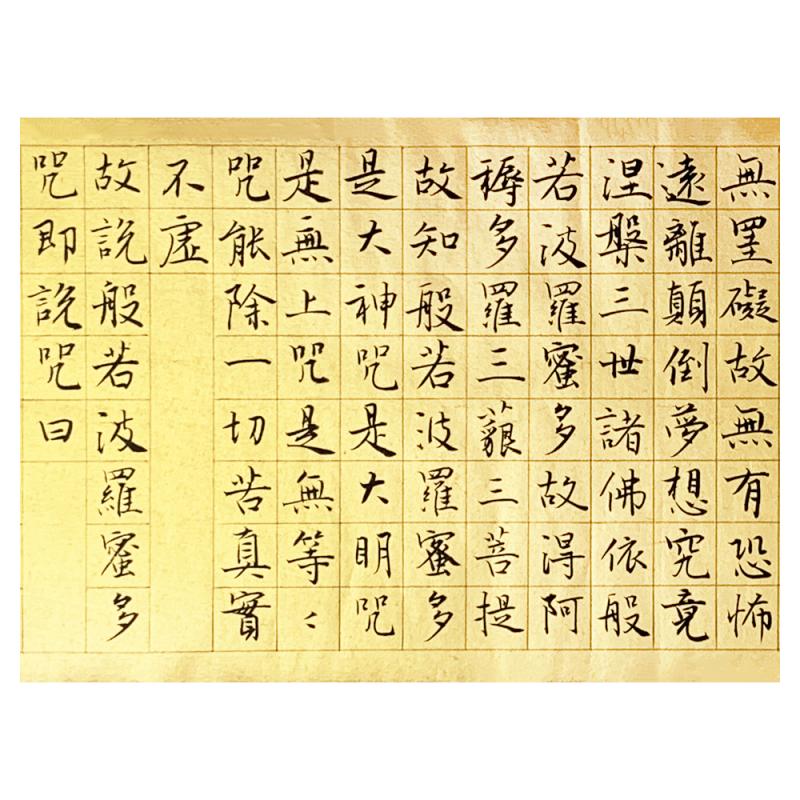 無罣礙故無有恐怖
遠離顛倒夢想究竟
涅槃三世諸佛依般
若波羅蜜多故得阿
耨多羅三藐三菩提
故知般若波羅蜜多
是大神咒是大明咒
是無上咒是無等〻
咒能除一切苦真實
不虛
故說般若波羅蜜多
咒即說咒曰